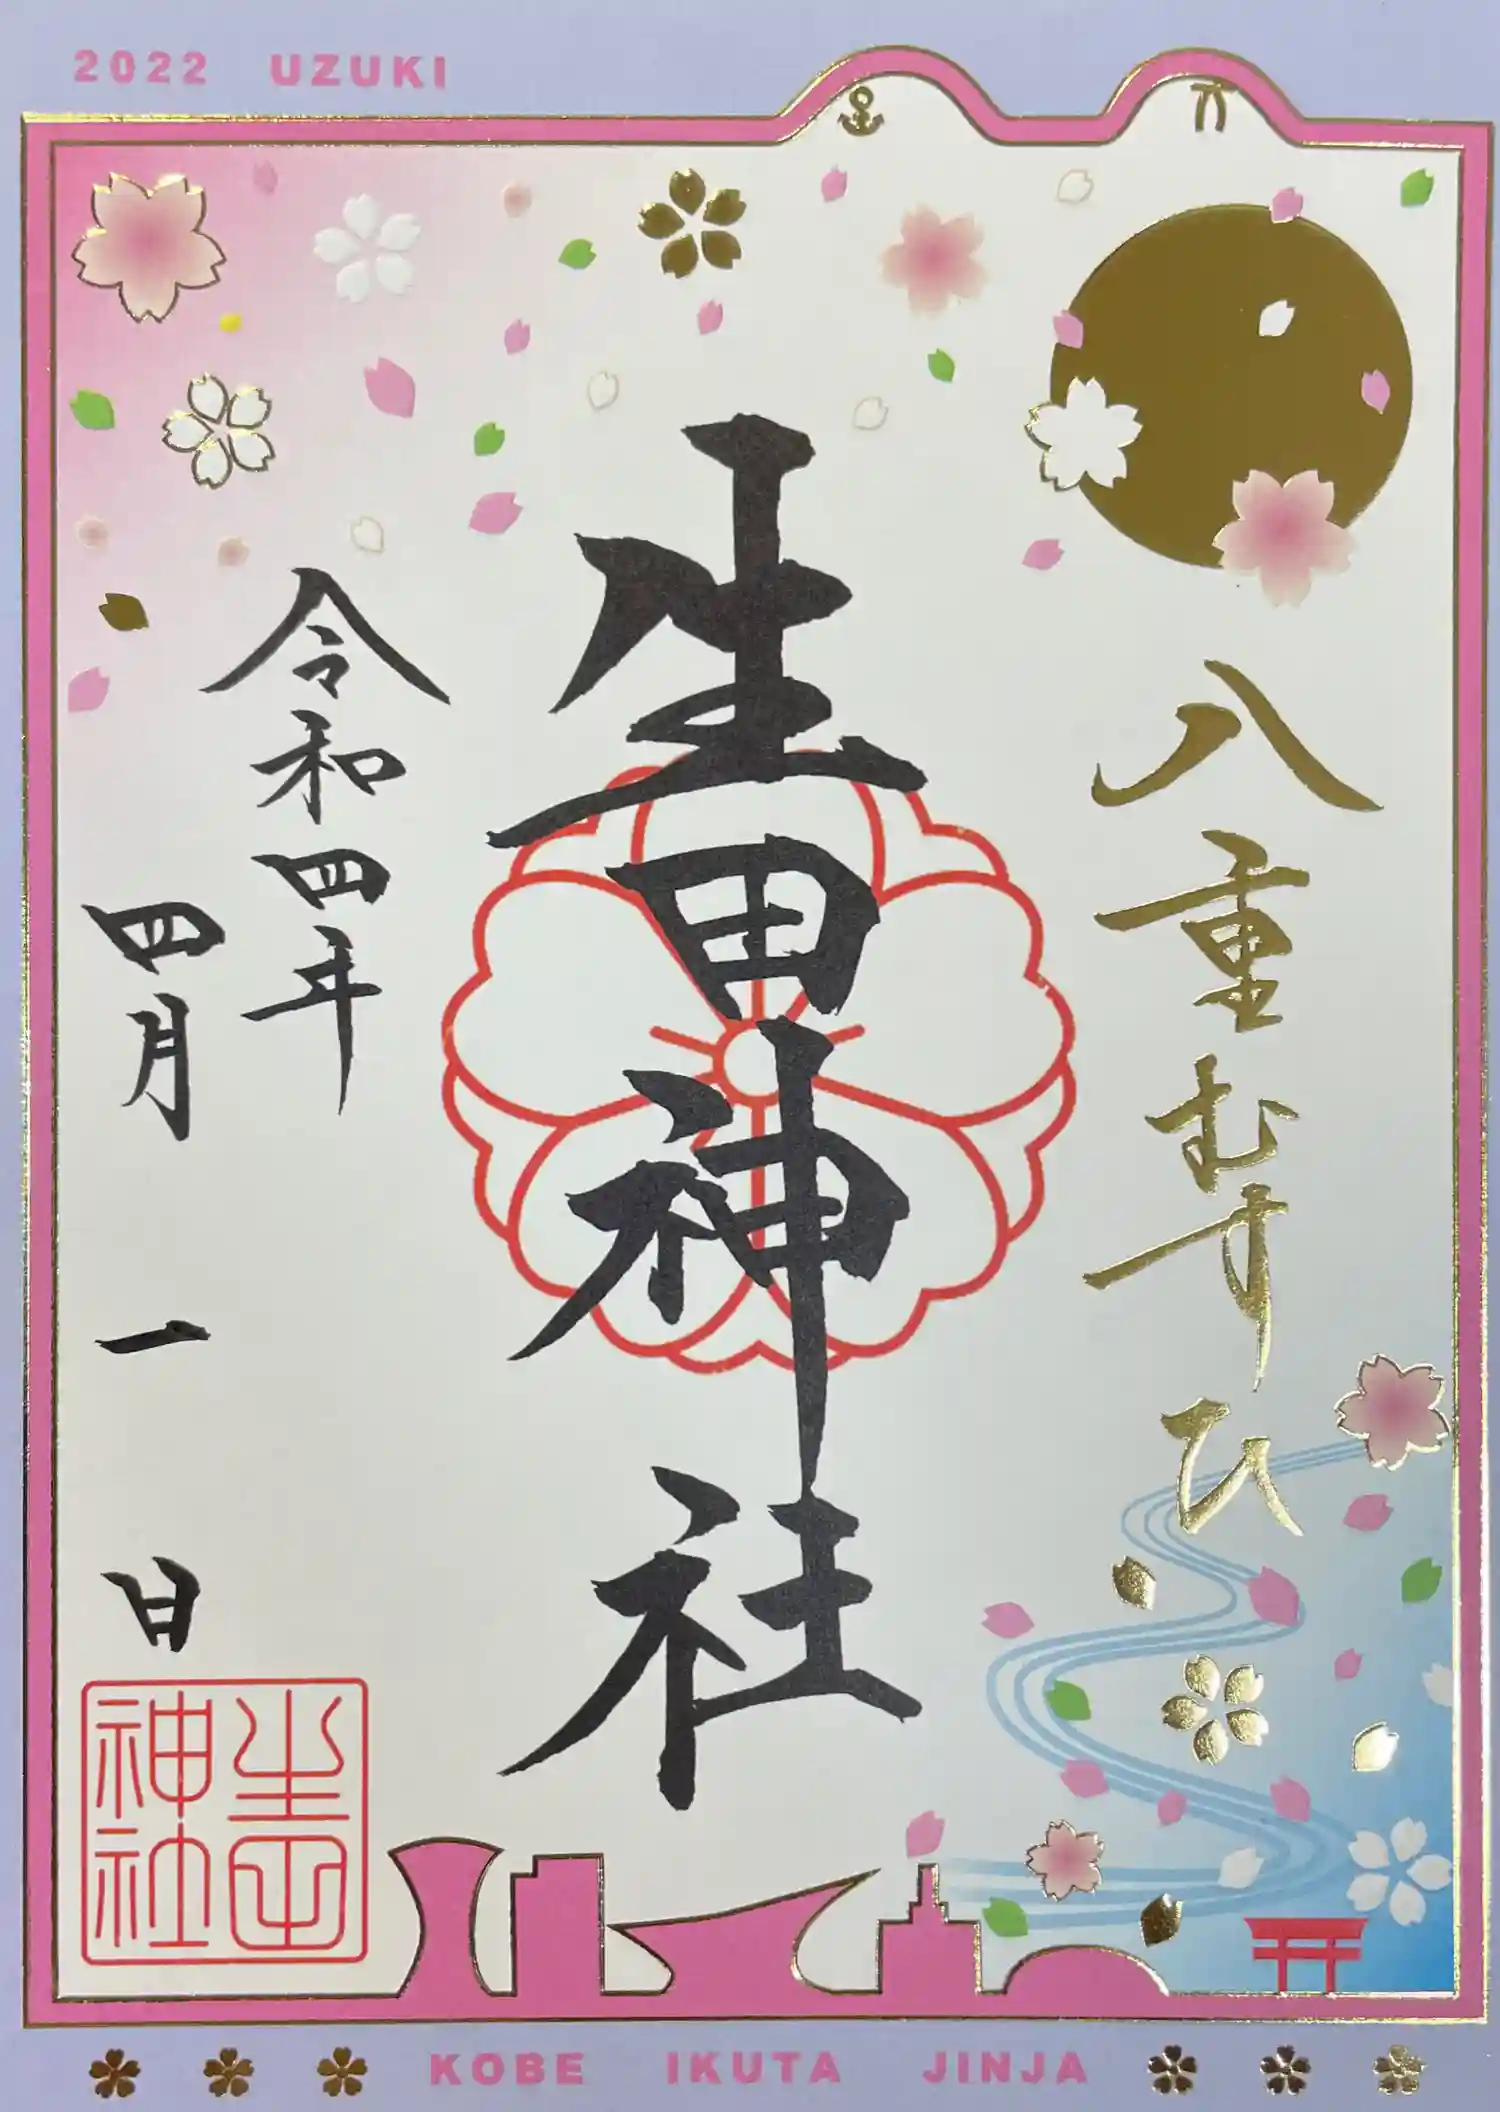 2022 UZUKI
八重むすひ
生田神社
令和四年
四月一日
生田
神社
KOBE IKUTA JINJA